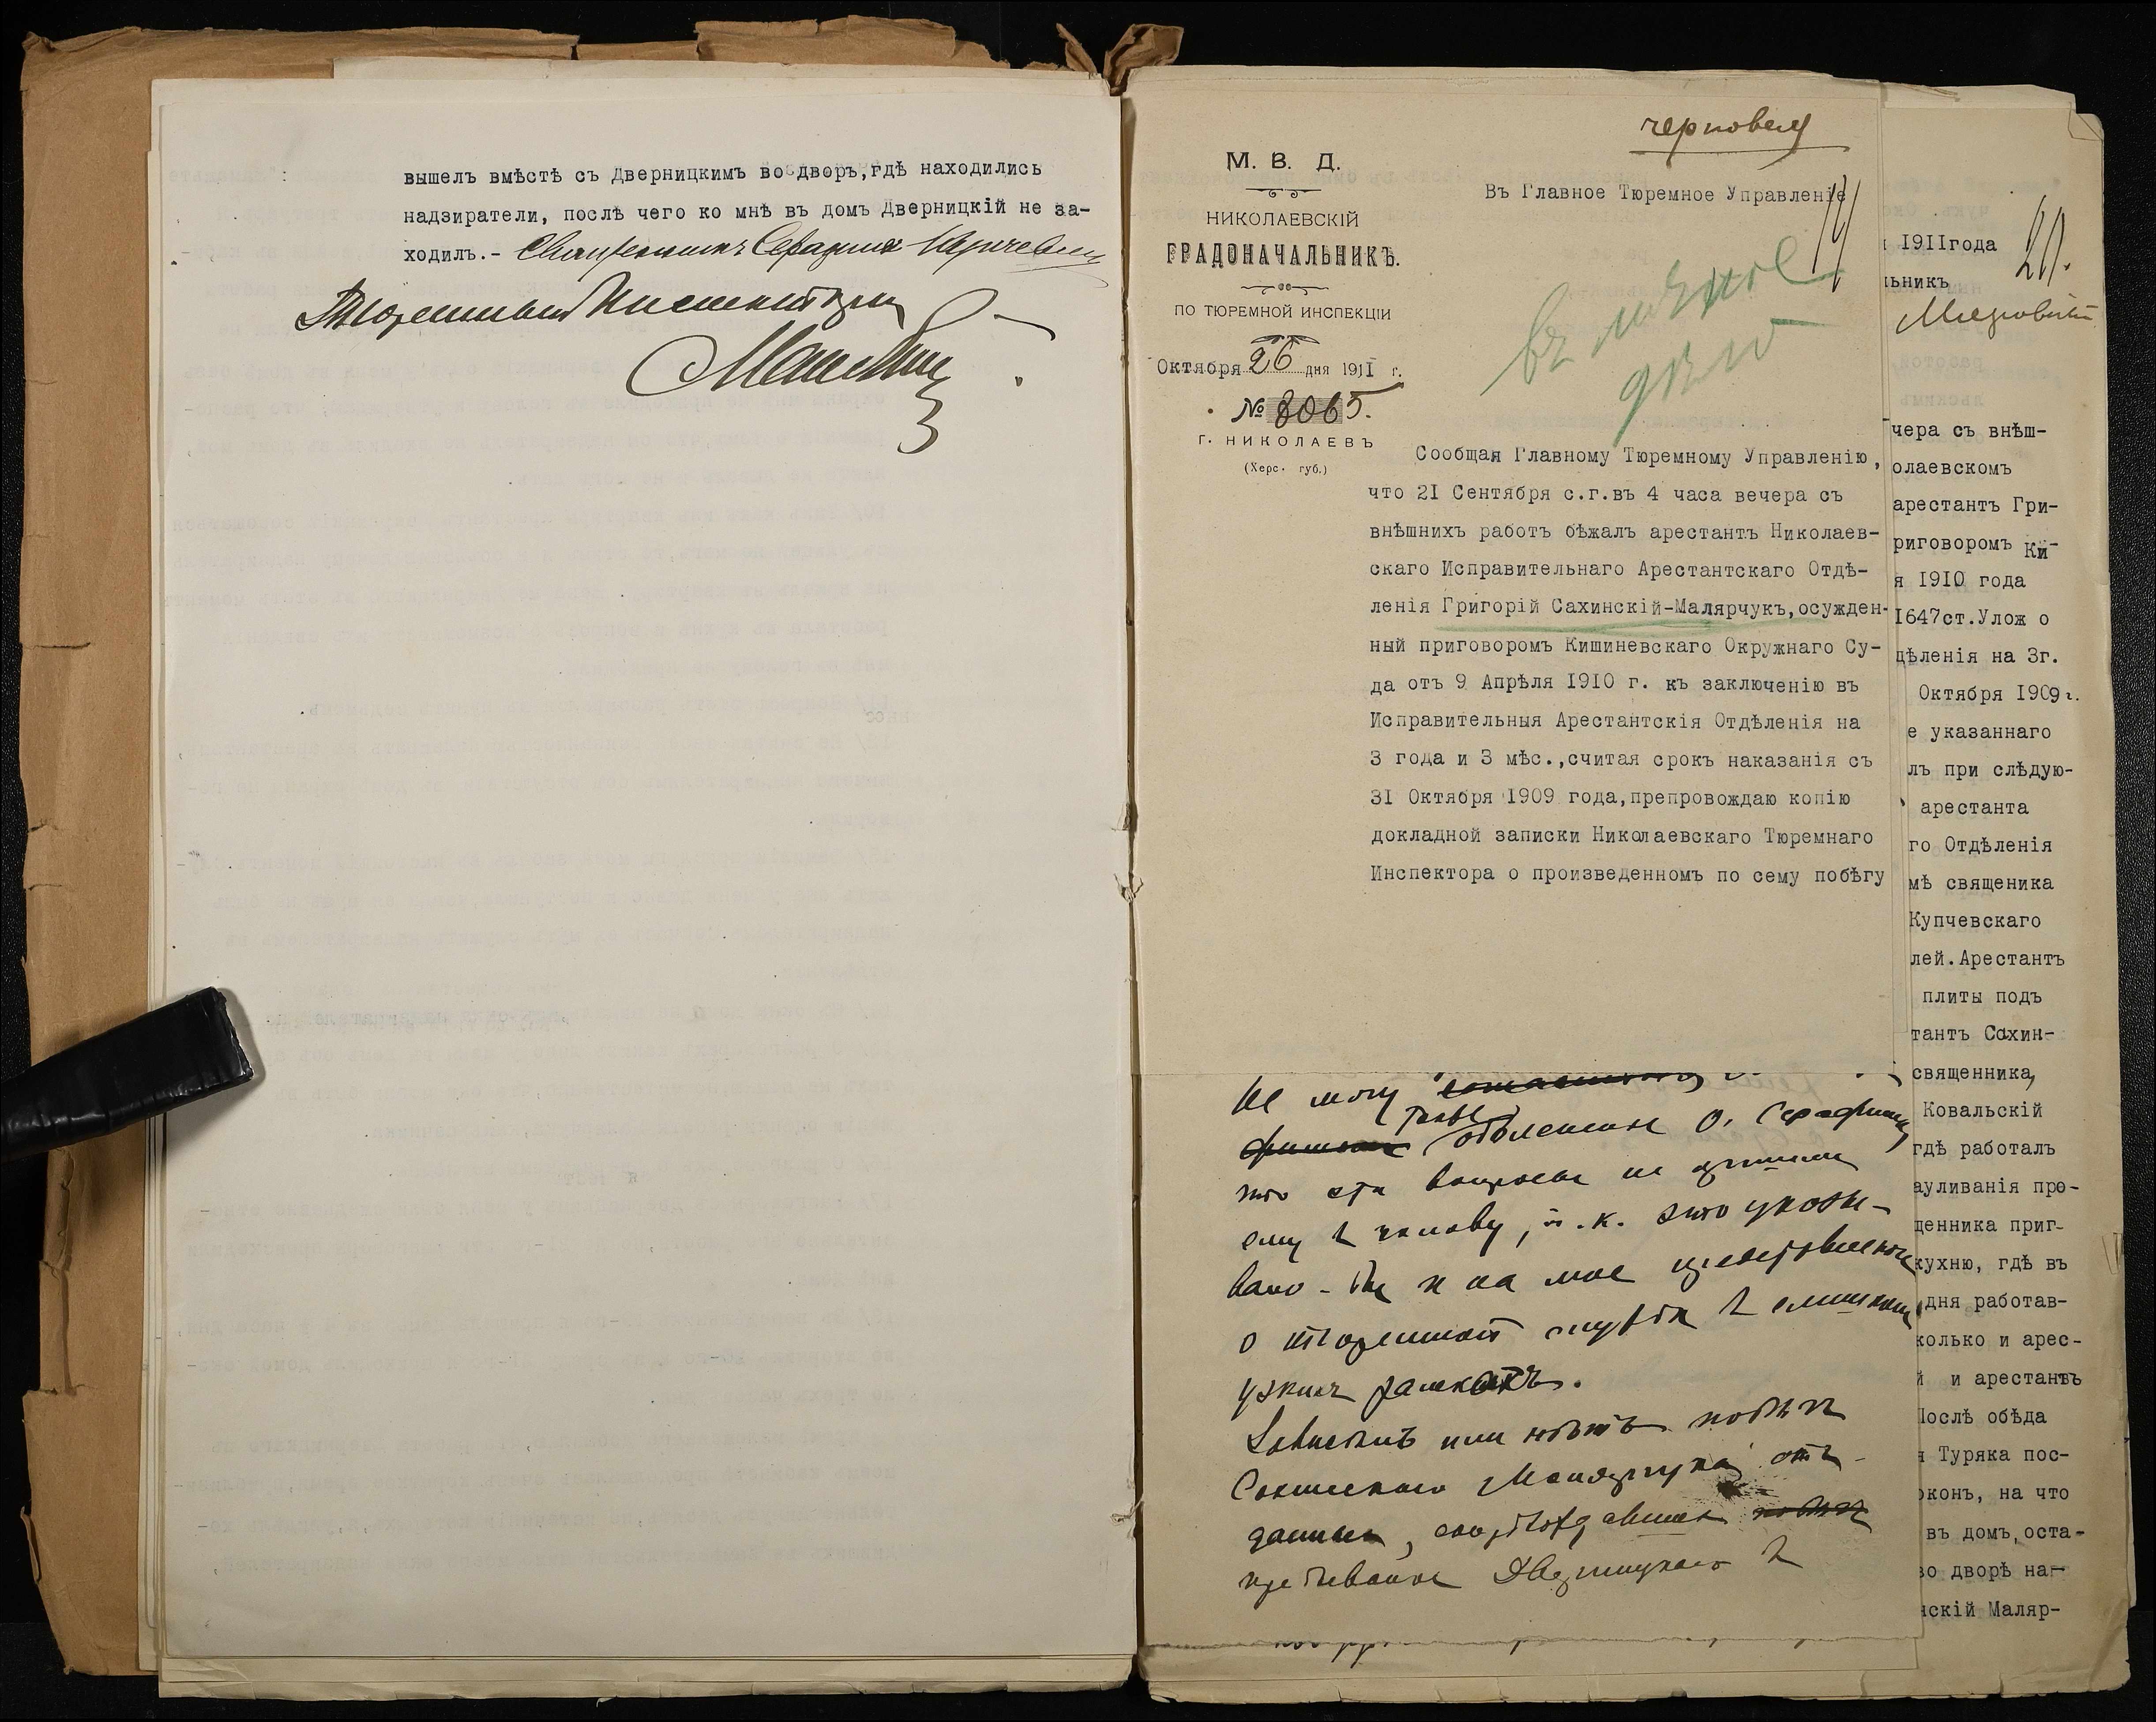 вышелъ вмѣстѣ съ Дверницкимъ во дворъ,гдѣ находились
надзиратели, послѣ чего ко мнѣ въ домъ Дверницкій не за-
ходилъ.- Священникъ Серафимъ Купчевскій
Тюремный Инспекторъ
черновая
М. В. Д.
НИКОЛАЕВСКІЙ
ГРАДОНАЧАЛЬНИКЪ.
ПО ТЮРЕМНОЙ ИНСПЕКЦІИ
Октября 26 дня 1911 г.
№ 8065.
г. НИКОЛАЕВЪ
(Херс. губ.)
Въ Главное Тюремное Управленіе
дѣло
Сообщая Главному Тюремному Управленію,
что 21 Сентября с.г.въ 4 часа вечера съ
внѣшнихъ работъ бѣжалъ арестантъ Николаев-
скаго Исправительнаго Арестантскаго Отдѣ-
ленія Григорій Сахинскій-Малярчукъ,осужден-
ный приговоромъ Кишиневскаго Окружнаго Су-
да отъ 9 Апрѣля 1910 г. къ заключенію въ
Исправительныя Арестантскія Отдѣленія на
3 года и 3 мѣс.,считая срокъ наказанія съ
31 Октября 1909 года,препровождаю копію
докладной записки Николаевскаго Тюремнаго
Инспектора о произведенномъ по сему побѣгу
Не могу
О. Серафима
что эти вопросы не пришли
ему в голову, т.к. это указы-
вало-бы и на мое
о тюремной службѣ в слишкомъ
узкихъ рамкахъ.
Зависитъ или нѣтъ побѣгъ
Сахинскаго Малярчука отъ
данныхъ,
пребываніе Дверницкаго в
1911года
ьникъ
чера съ внѣш-
олаевскомъ
арестантъ Гри-
риговоромъ Ки-
я 1910 года
1647ст.Улож о
дѣленія на 3г.
Октября 1909г.
е указаннаго
лъ при слѣдую-
арестанта
го Отдѣленія
мѣ священика
Купчевскаго
лей.Арестантъ
плиты подъ
тантъ Сахин-
священника,
Ковальскій
гдѣ работалъ
ауливанія про-
щенника приг-
кухню, гдѣ въ
дня работав-
колько и арес-
й и арестантъ
Послѣ обѣда
я Туряка пос-
оконъ, на что
въ домъ,оста-
во дворѣ на-
нскій Маляр-